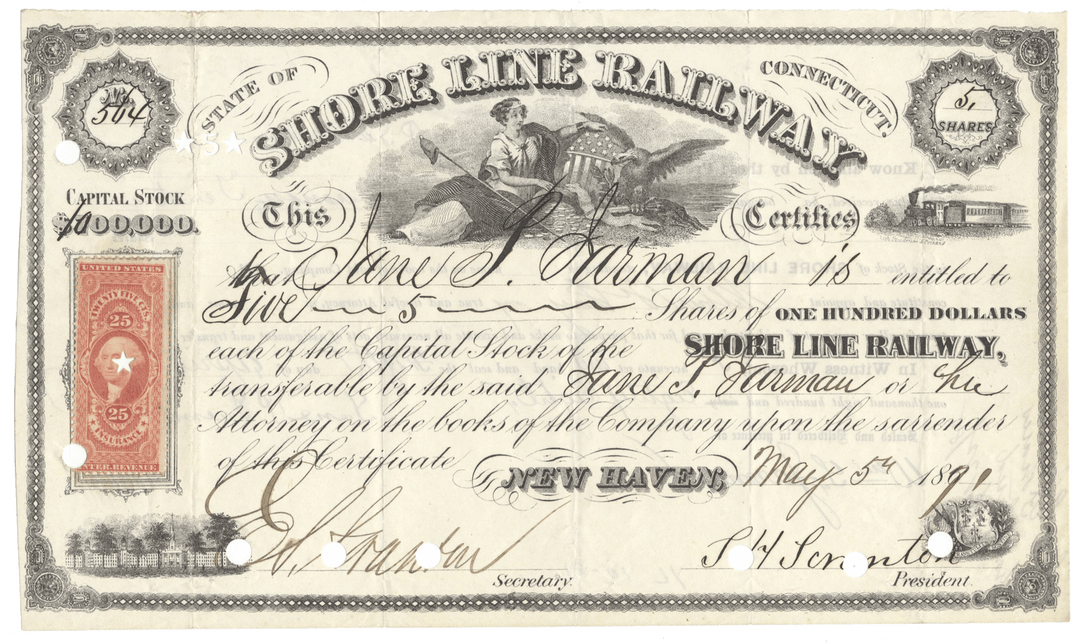 No.
564
STATE OF
SHORE LINE RAILWAY
CONNECTICUT.
5,
SHARES
★S★
CAPITAL STOCK
$1000,000.
This
Certifies
that Jane P. Jarman is entitled to
Five 5 Shares of ONE HUNDRED DOLLARS
each of the Capital Stock of the SHORE LINE RAILWAY,
transferable by the said Jane P. Jarman or
Attorney on the books of the Company upon the surrender
of this Certificate NEW HAVEN, May 5th 1891
UNITED STATES
TWENTY FIVE CTS.
25
25
INSURANCE
INTER. REVENUE
Secretary.
S H Scranton
President.